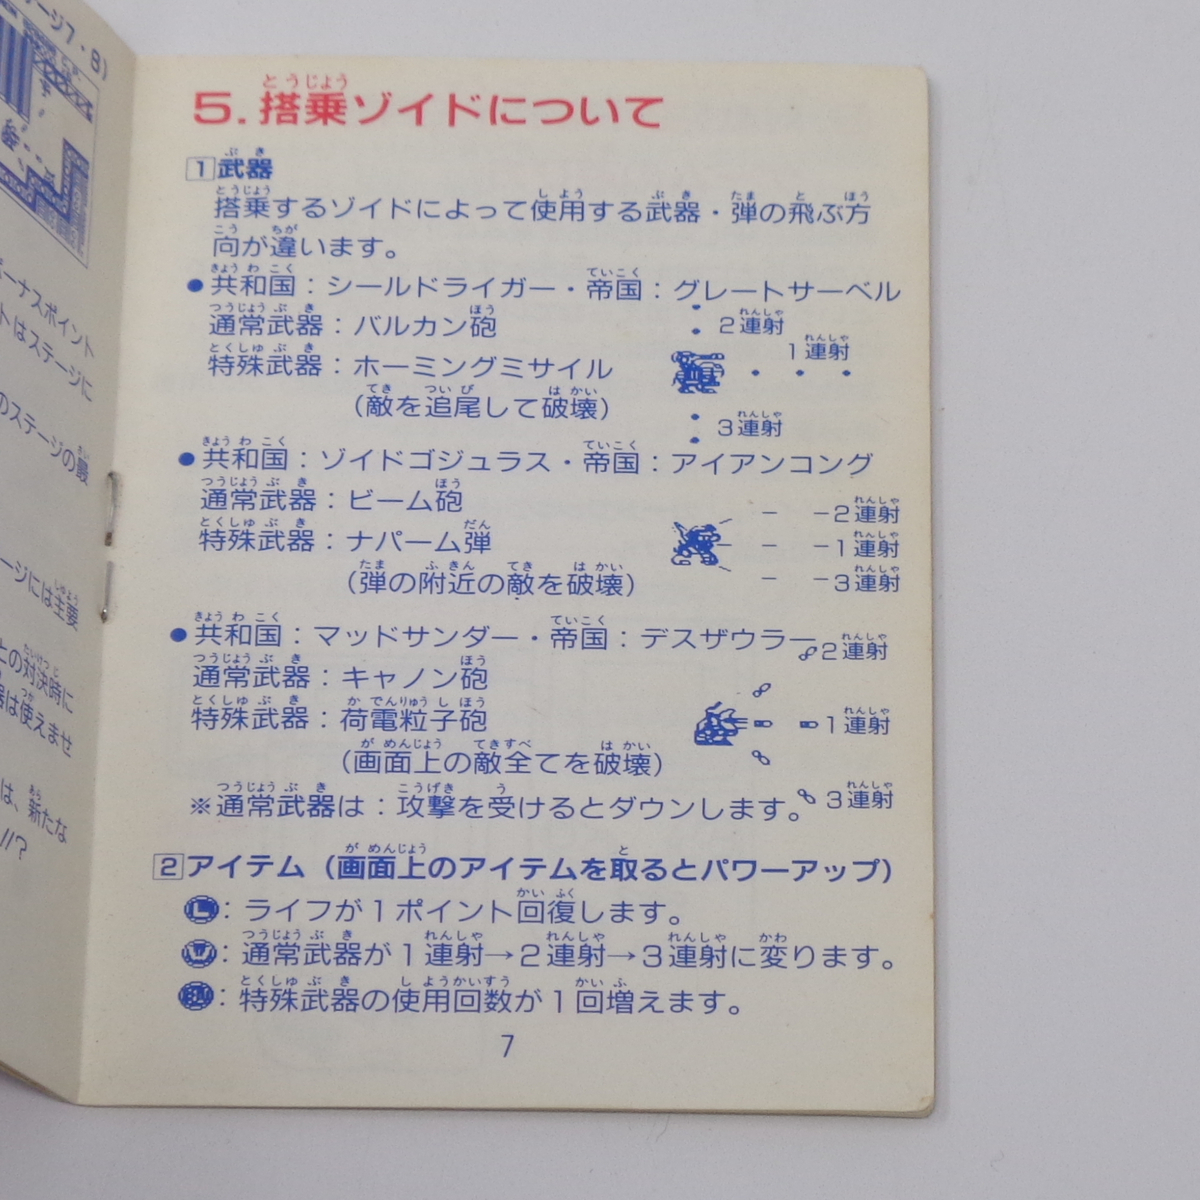 ージ7・8)
ボーナスポイント
トはステージに
のステージの最
ージには主要
との対決時に
器は使えませ
は、新たな
//?
5.搭乗ゾイドについて
1武器
搭乗するゾイドによって使用する武器・弾の飛ぶ方
向が違います。
●共和国：シールドライガー・帝国：グレートサーベル
通常武器：バルカン砲
2連射
1連射
特殊武器：ホーミングミサイル
(敵を追尾して破壊)
3連射
●共和国：ゾイドゴジュラス・帝国：アイアンコング
通常武器：ビーム砲
2連射
特殊武器：ナパーム弾
1連射
(弾の附近の敵を破壊)
3連射
●共和国：マッドサンダー・帝国：デスザウラー
2連射
通常武器：キャノン砲
特殊武器：荷電粒子砲
1連射
(画面上の敵全てを破壊)
※通常武器は：攻撃を受けるとダウンします。
3連射
2アイテム(画面上のアイテムを取るとパワーアップ)
L：ライフが1ポイント回復します。
W：通常武器が1連射→2連射→3連射に変ります。
：特殊武器の使用回数が1回増えます。
7